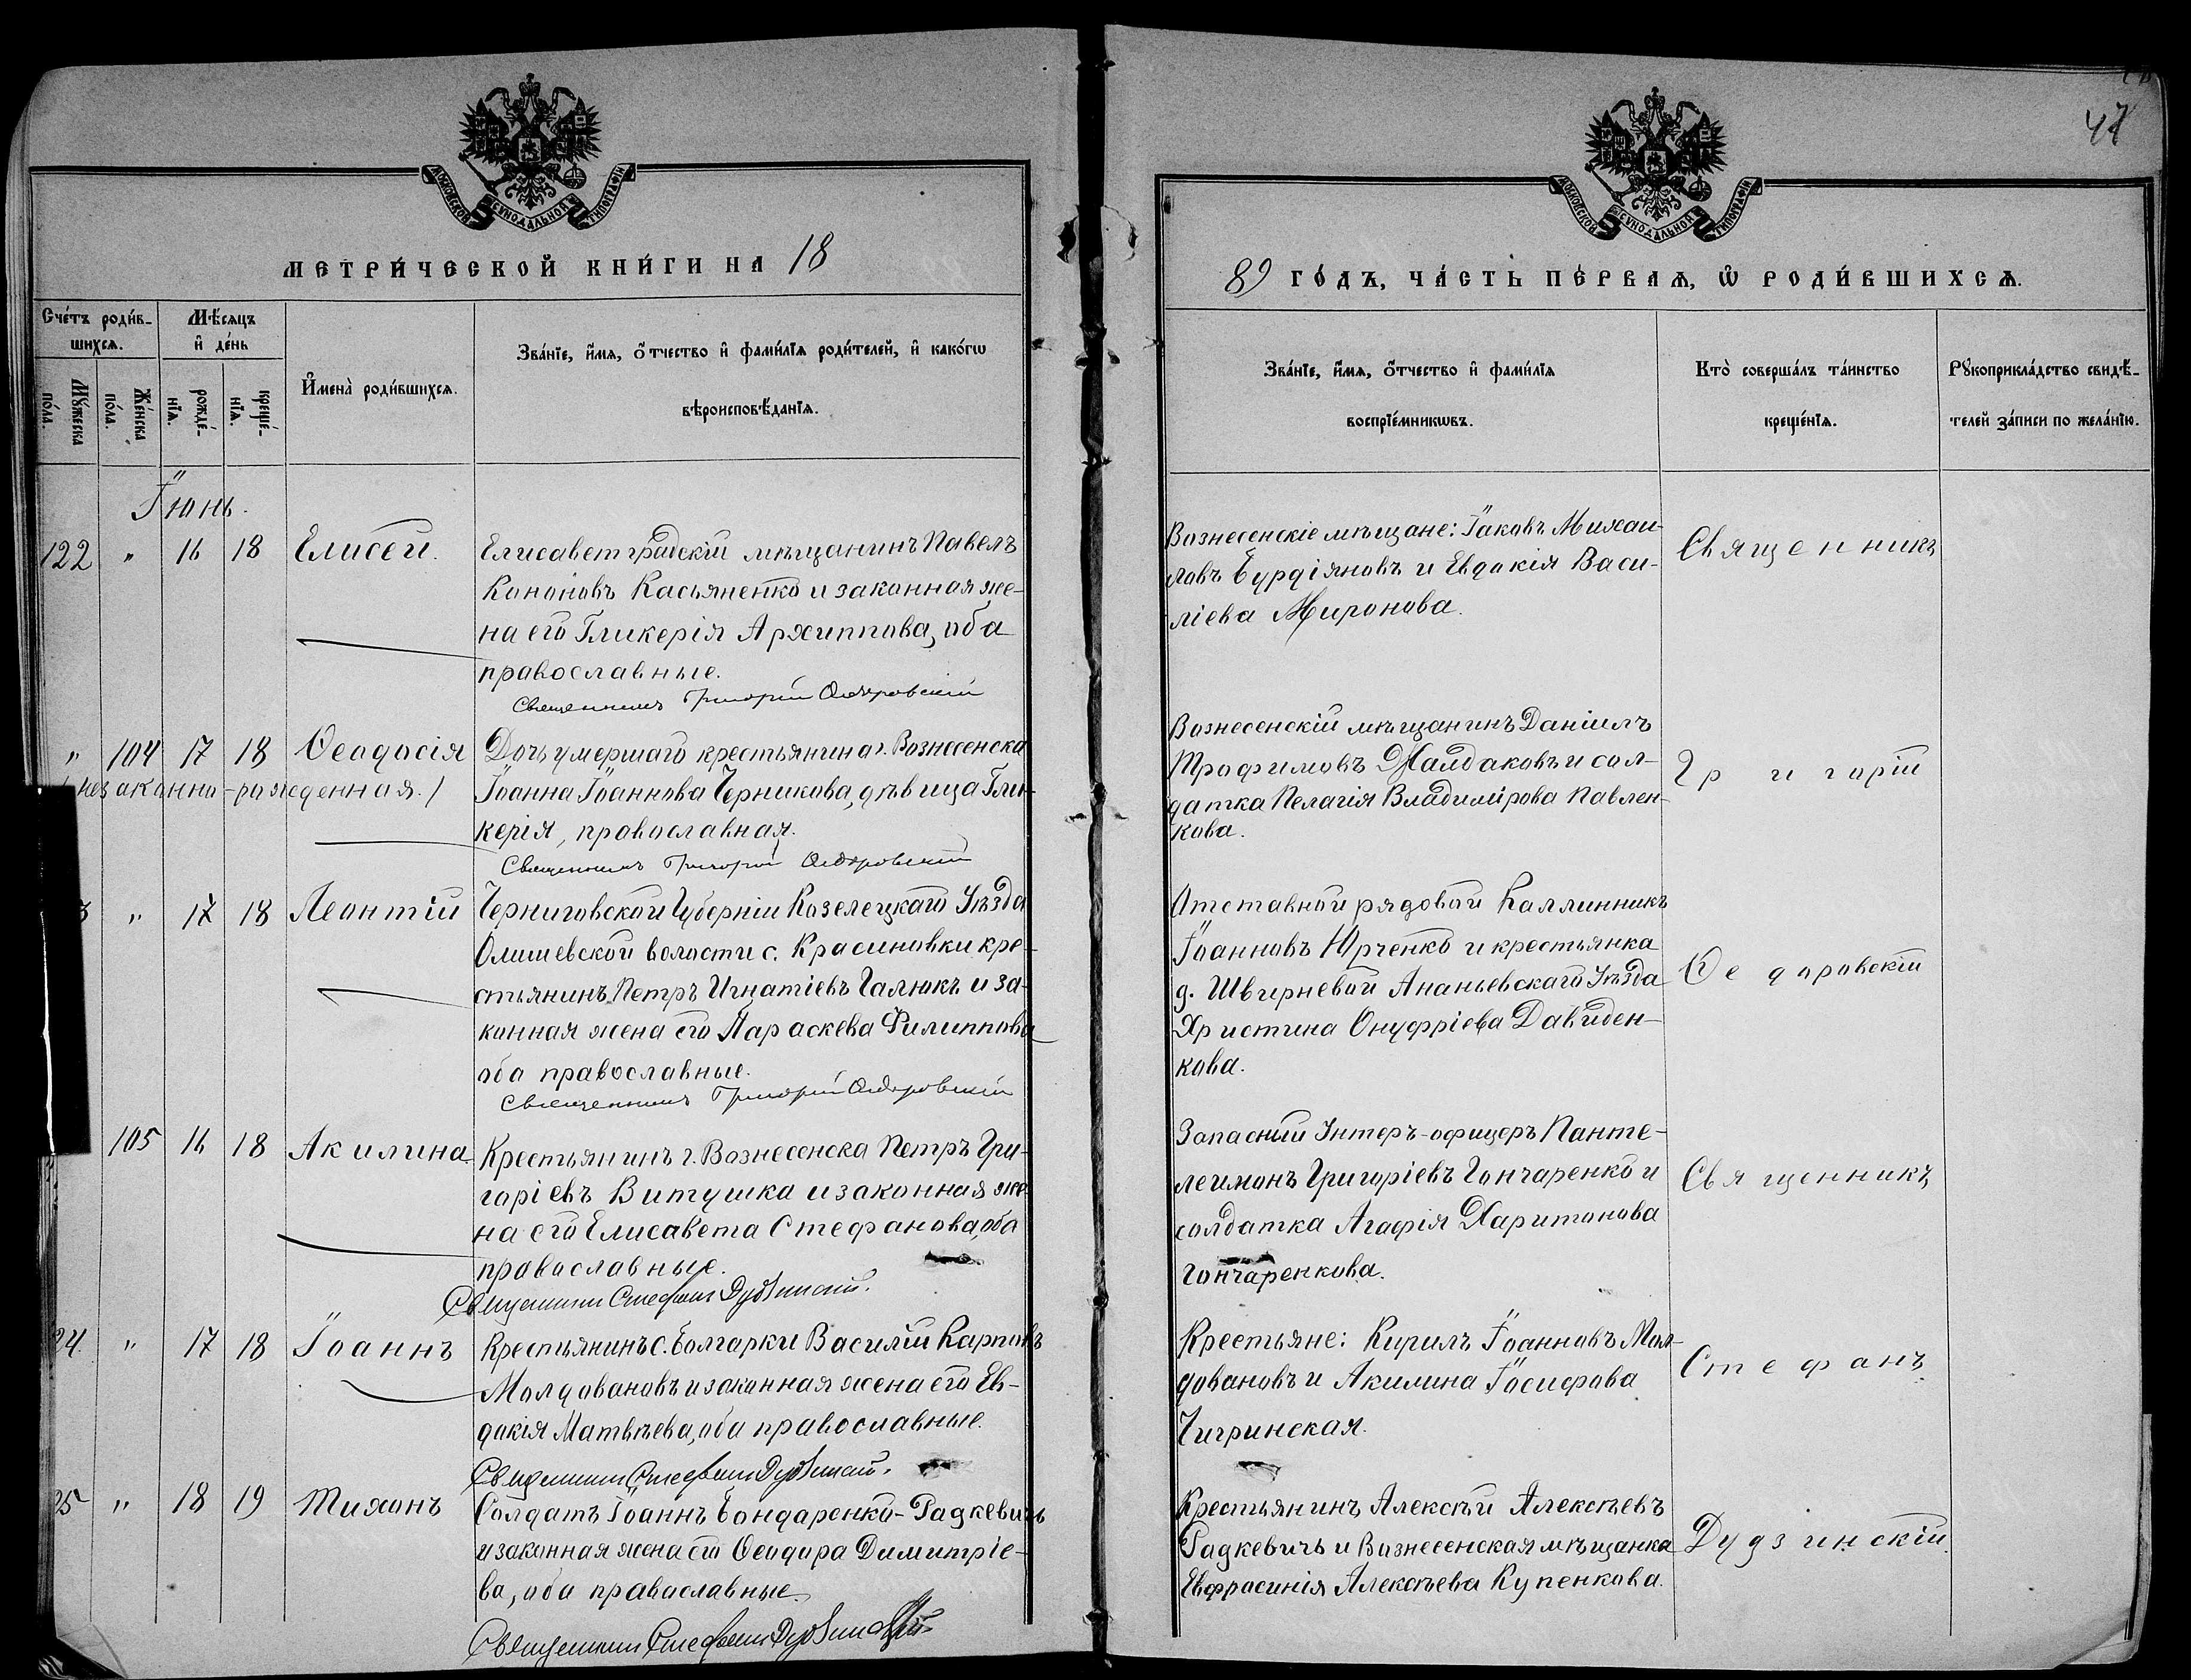 47
МОСКОВСКОЙ СѴНОДАЛЬНОЙ ТИПОГРАФІИ
МОСКОВСКОЙ СѴНОДАЛЬНОЙ ТИПОГРАФІИ
МЕТРИ́ЧЕСКОЙ КНИ́ГИ НА 18
89 ГО́ДЪ, ЧА́СТЬ ПЕ́РВАѦ, Ѽ РОДИ́ВШИХСѦ.
Сче́тъ роди́в-
шихсѧ.
Мѣ́сѧцъ
и҆ де́нь
Мꙋ́жеска по́ла.
Же́нска по́ла.
рожде́-
нїѧ.
креще́-
нїѧ.
И҆мена̀ роди́вшихсѧ.
Зва́нїе, и҆́мѧ, ѻ҆́тчество и҆ фами́лїѧ роди́телей, и҆ како́гѡ
вѣроисповѣ́данїѧ.
Зва́нїе, и҆́мѧ, ѻ҆́тчество и҆ фами́лїѧ
воспрїе́мникѡвъ.
Кто̀ соверша́лъ та́инство
креще́нїѧ.
Рꙋкоприкла́дство свидѣ́-
телей за́писи по жела́нїю.
Іюнь.
122 " 16 18 Елисей.
Елисаветградскій мѣщанинъ Павелъ
Кононовъ Касьяненко и законная же-
на его Гликерія Архиппова, оба
православные.
Священникъ Григорій Ѳедоровскій
Вознесенскіе мѣщане: Іаковъ Михаи-
ловъ Бурдіяновъ и Евдокія Васи-
ліева Миронова.
Священникъ
" 104 17 18 Ѳеодосія
(незаконно-рожденная.)
Дочь умершаго крестьянина г. Вознесенска
Іоанна Іоаннова Черникова, дѣвица Гли-
керія, православная.
Священникъ Григорій Ѳедоровскій
Вознесенскій мѣщанинъ Даніилъ
Трофимовъ Жалдаковъ и сол-
датка Пелагія Владимірова Павлен-
кова.
Григорій
3 " 17 18 Леонтій
Черниговской Губерніи Козелецкаго Уѣзда
Олишевской волости с. Красиновки кре-
стьянинъ Петръ Игнатіевъ Галюкъ и за-
конная жена его Параскева Филиппова
оба православные.
Священникъ Григорій Ѳедоровскій
Отставной рядовой Каллинникъ
Іоанновъ Юрченко и крестьянка
д. Швырневой Ананьевскаго Уѣзда
Христина Онуфріева Давиден-
кова.
Ѳедоровскій
105 16 18 Акилина
Крестьянинъ г. Вознесенска Петръ Гри-
горіевъ Витушка и законная же-
на его Елисавета Стефанова, оба
православные.
Священникъ Стефанъ Дудзинскій.
Запасный Унтеръ-офицеръ Панте-
леимонъ Григоріевъ Гончаренко и
солдатка Агафія Харитонова
Гончаренкова.
Священникъ
24. " 17 18 Іоаннъ
Крестьянинъ с. Болгарки Василій Карповъ
Молдовановъ и законная жена его Ев-
докія Матвѣева, оба православные.
Священникъ Стефанъ Дудзинскій.
Крестьяне: Кирилъ Іоанновъ Мол-
довановъ и Акилина Іосифова
Чигринская.
Стефанъ
25 " 18 19 Тихонъ
Солдатъ Іоаннъ Бондаренко-Радкевичъ
и законная жена его Ѳеодора Димитріе-
ва, оба православные.
Священникъ Стефанъ Дудзинскій.
Крестьянинъ Алексѣй Алексѣевъ
Радкевичъ и Вознесенская мѣщанка
Евфросинія Алексѣева Купенкова.
Дудзинскій.